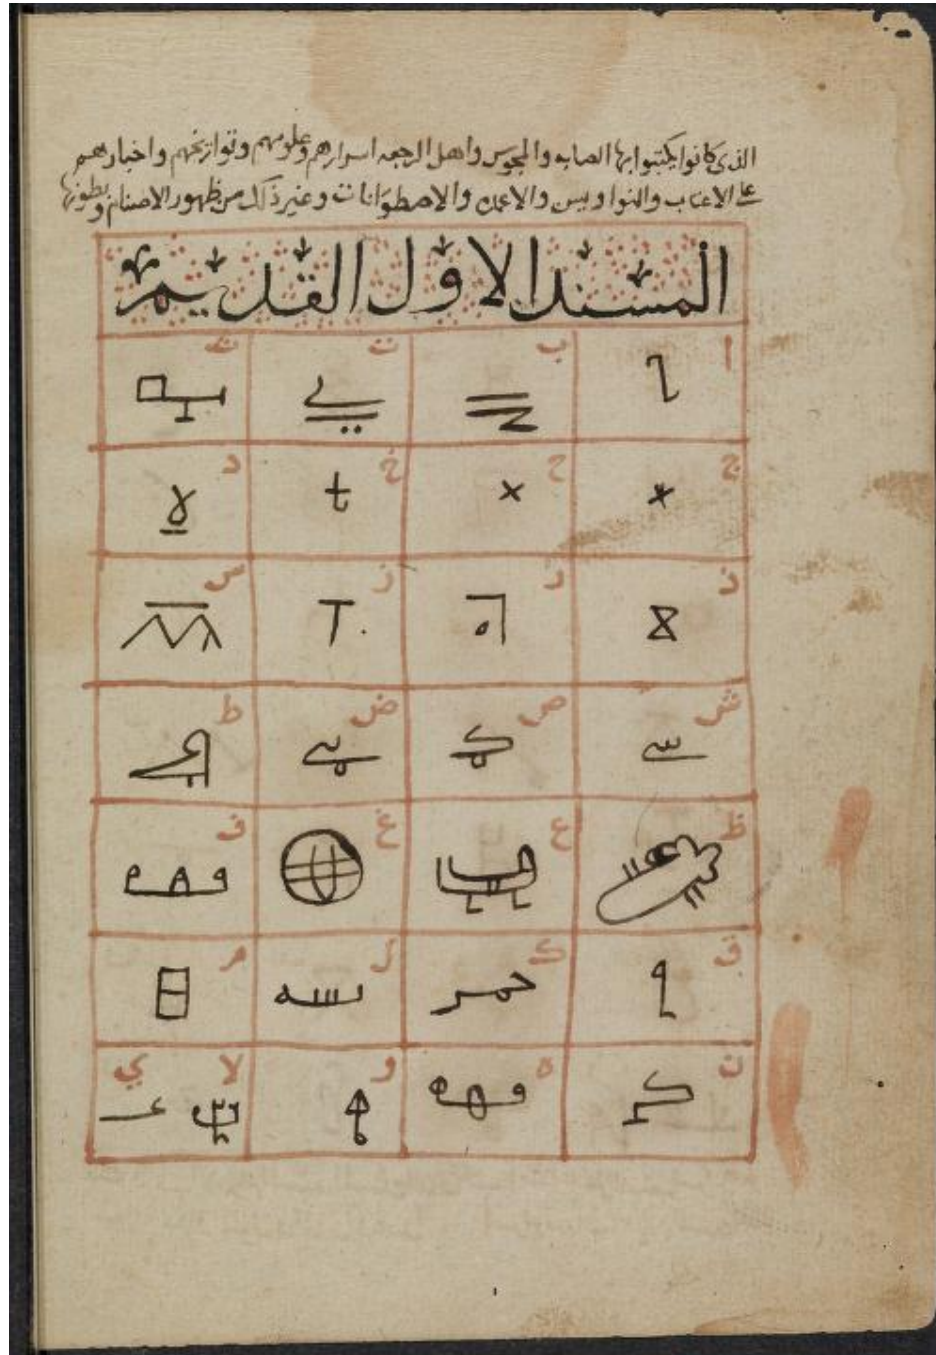 الذى كانوا يكتبوا بها الصابه والمجوس واهل الرجعه اسرارهم وعلومهم وتواريخهم واخبارهم
على الاعتاب والنواويس والاعمده والاصطوانات وغير ذلك من ظهور الاصنام وبطونها
المسند الاول القديم
ا ب ت ث
ج ح خ د
ذ ر ز س
ش ص ض ط
ظ ع غ ف
ق ك ل م
ن ه و لا ي